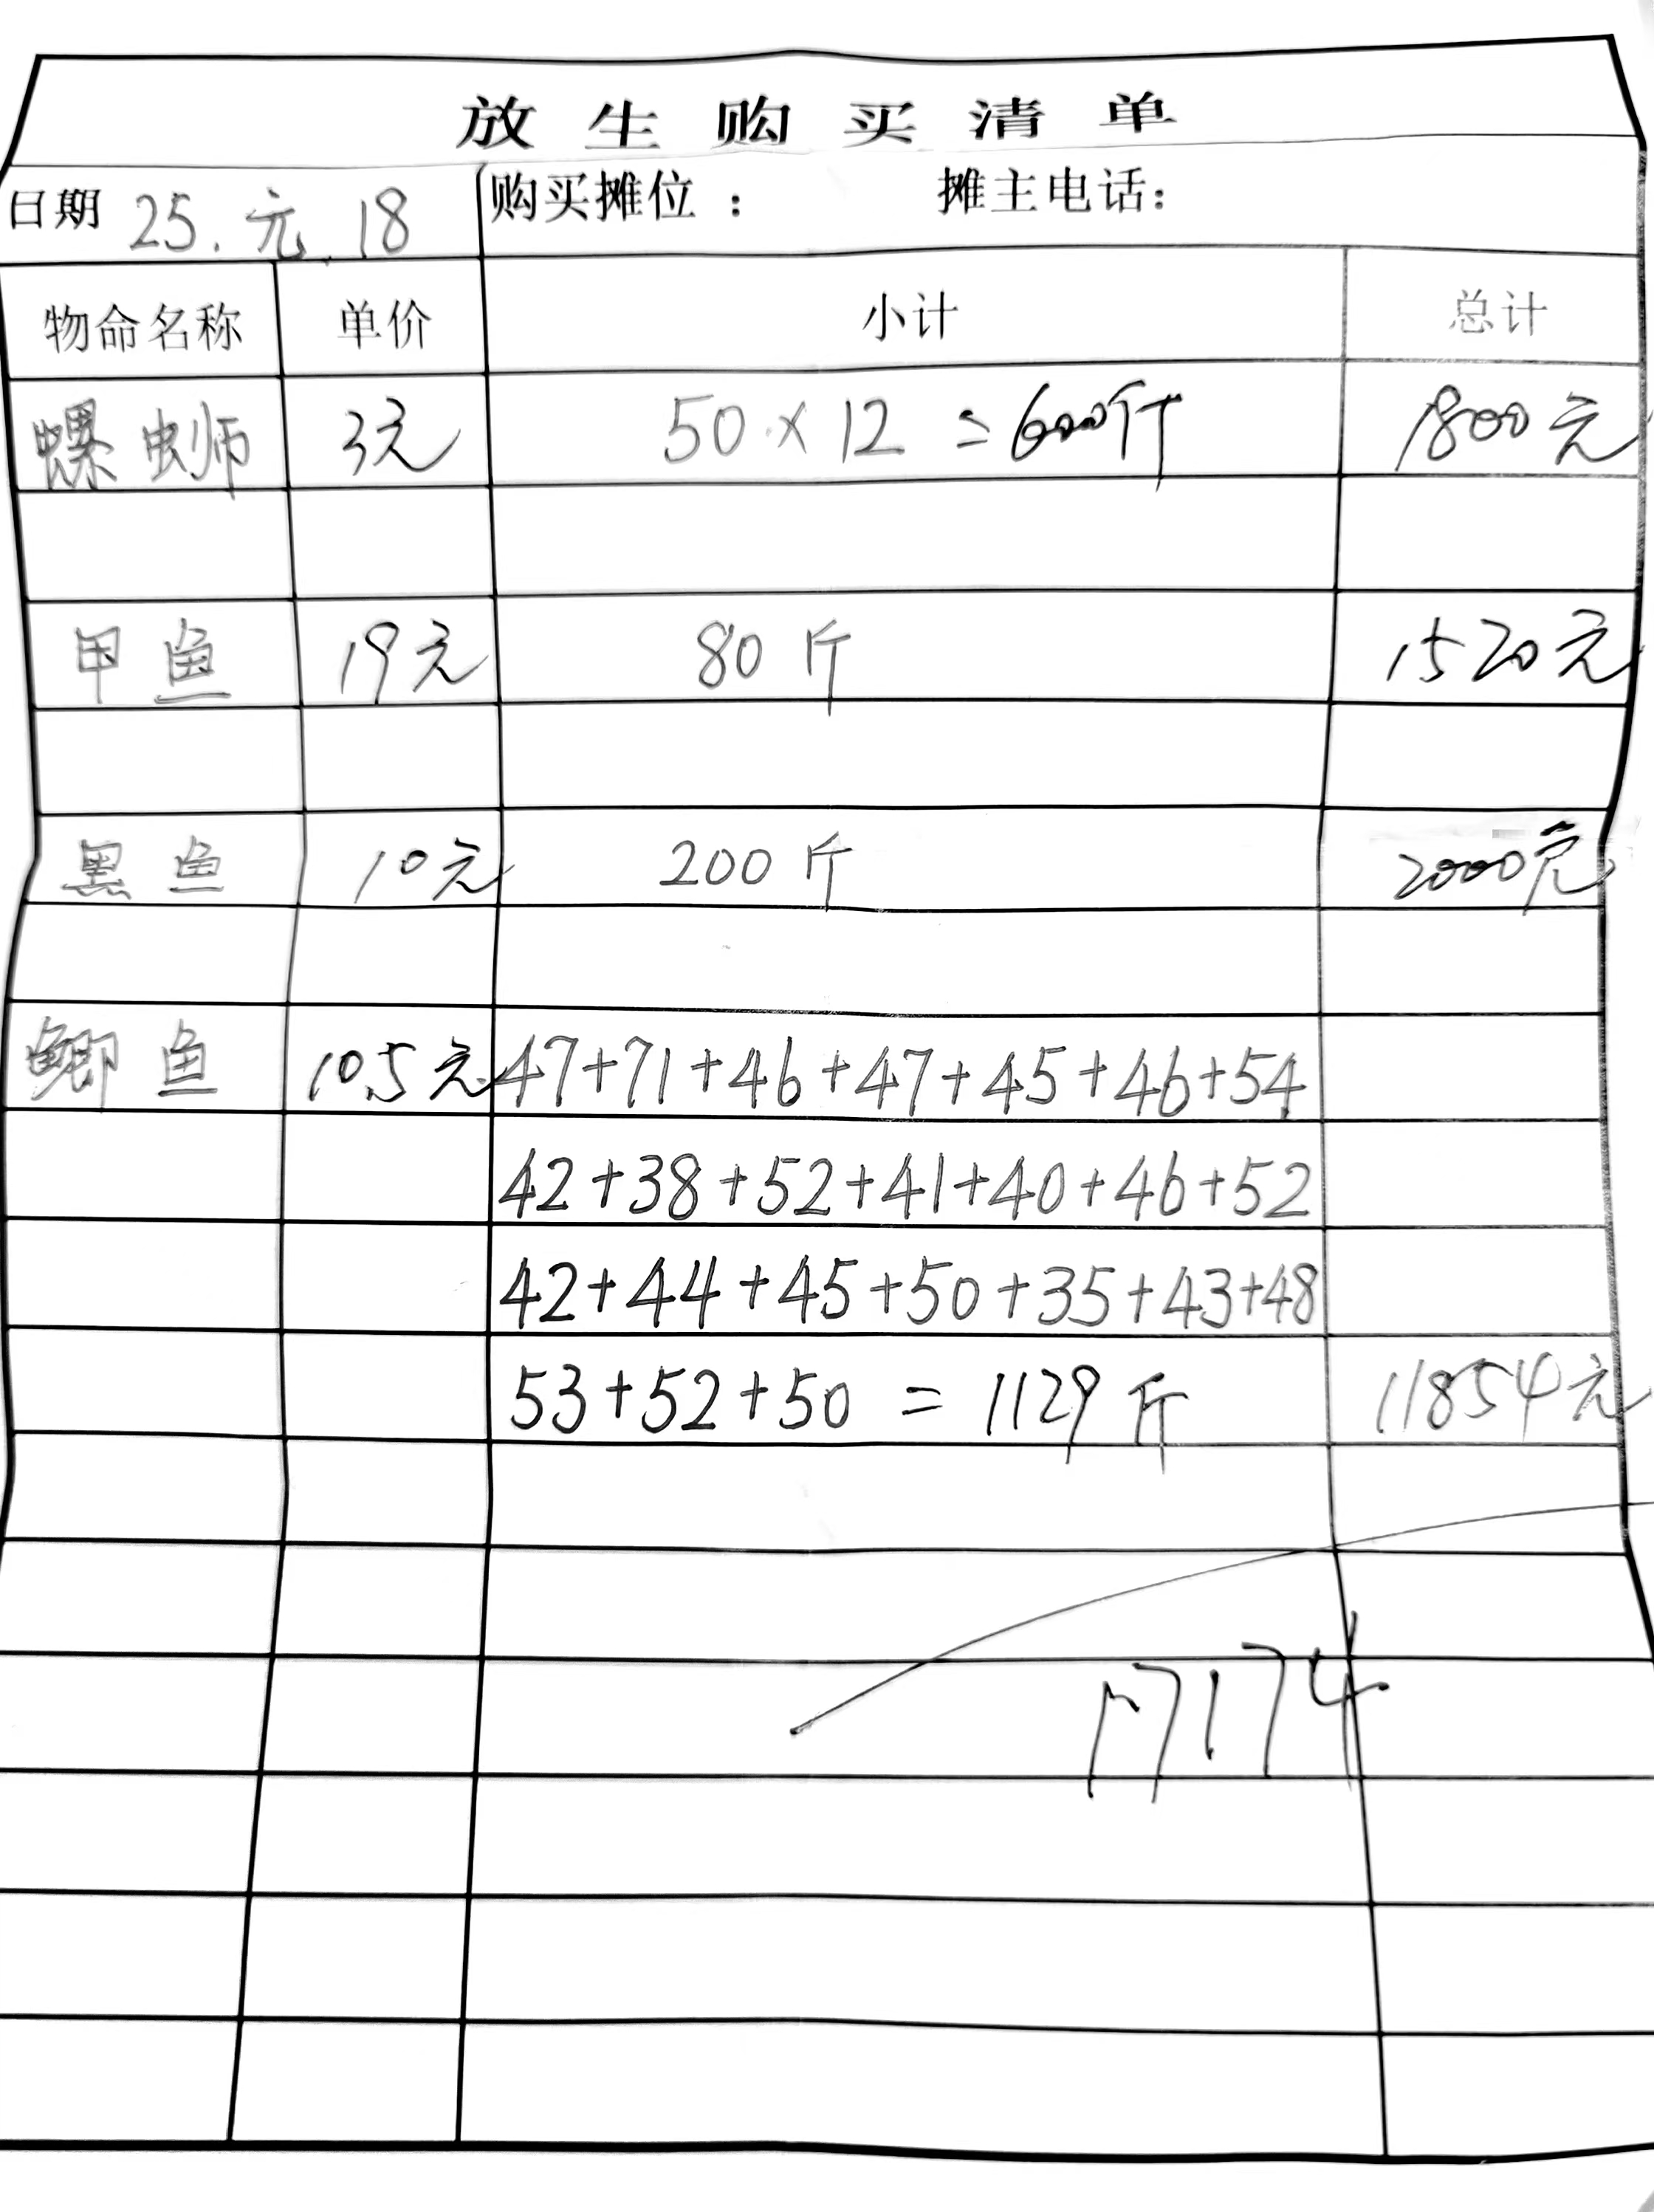 放生购买清单
日期 25.元.18 购买摊位： 摊主电话：
物命名称 单价 小计 总计
螺蛳 3元 50×12=600斤 1800元
甲鱼 19元 80斤 1520元
黑鱼 10元 200斤 2000元
鲫鱼 10.5元 47+71+46+47+45+46+54
42+38+52+41+40+46+52
42+44+45+50+35+43+48
53+52+50=1129斤 11854元
17174